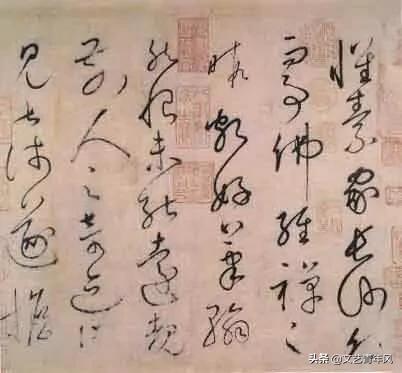 懷素家長沙幼
而事佛經禪之
暇頗好筆翰
然恨未能遠覩
前人之奇迹所
見甚淺遂擔
头条 @文艺青年风